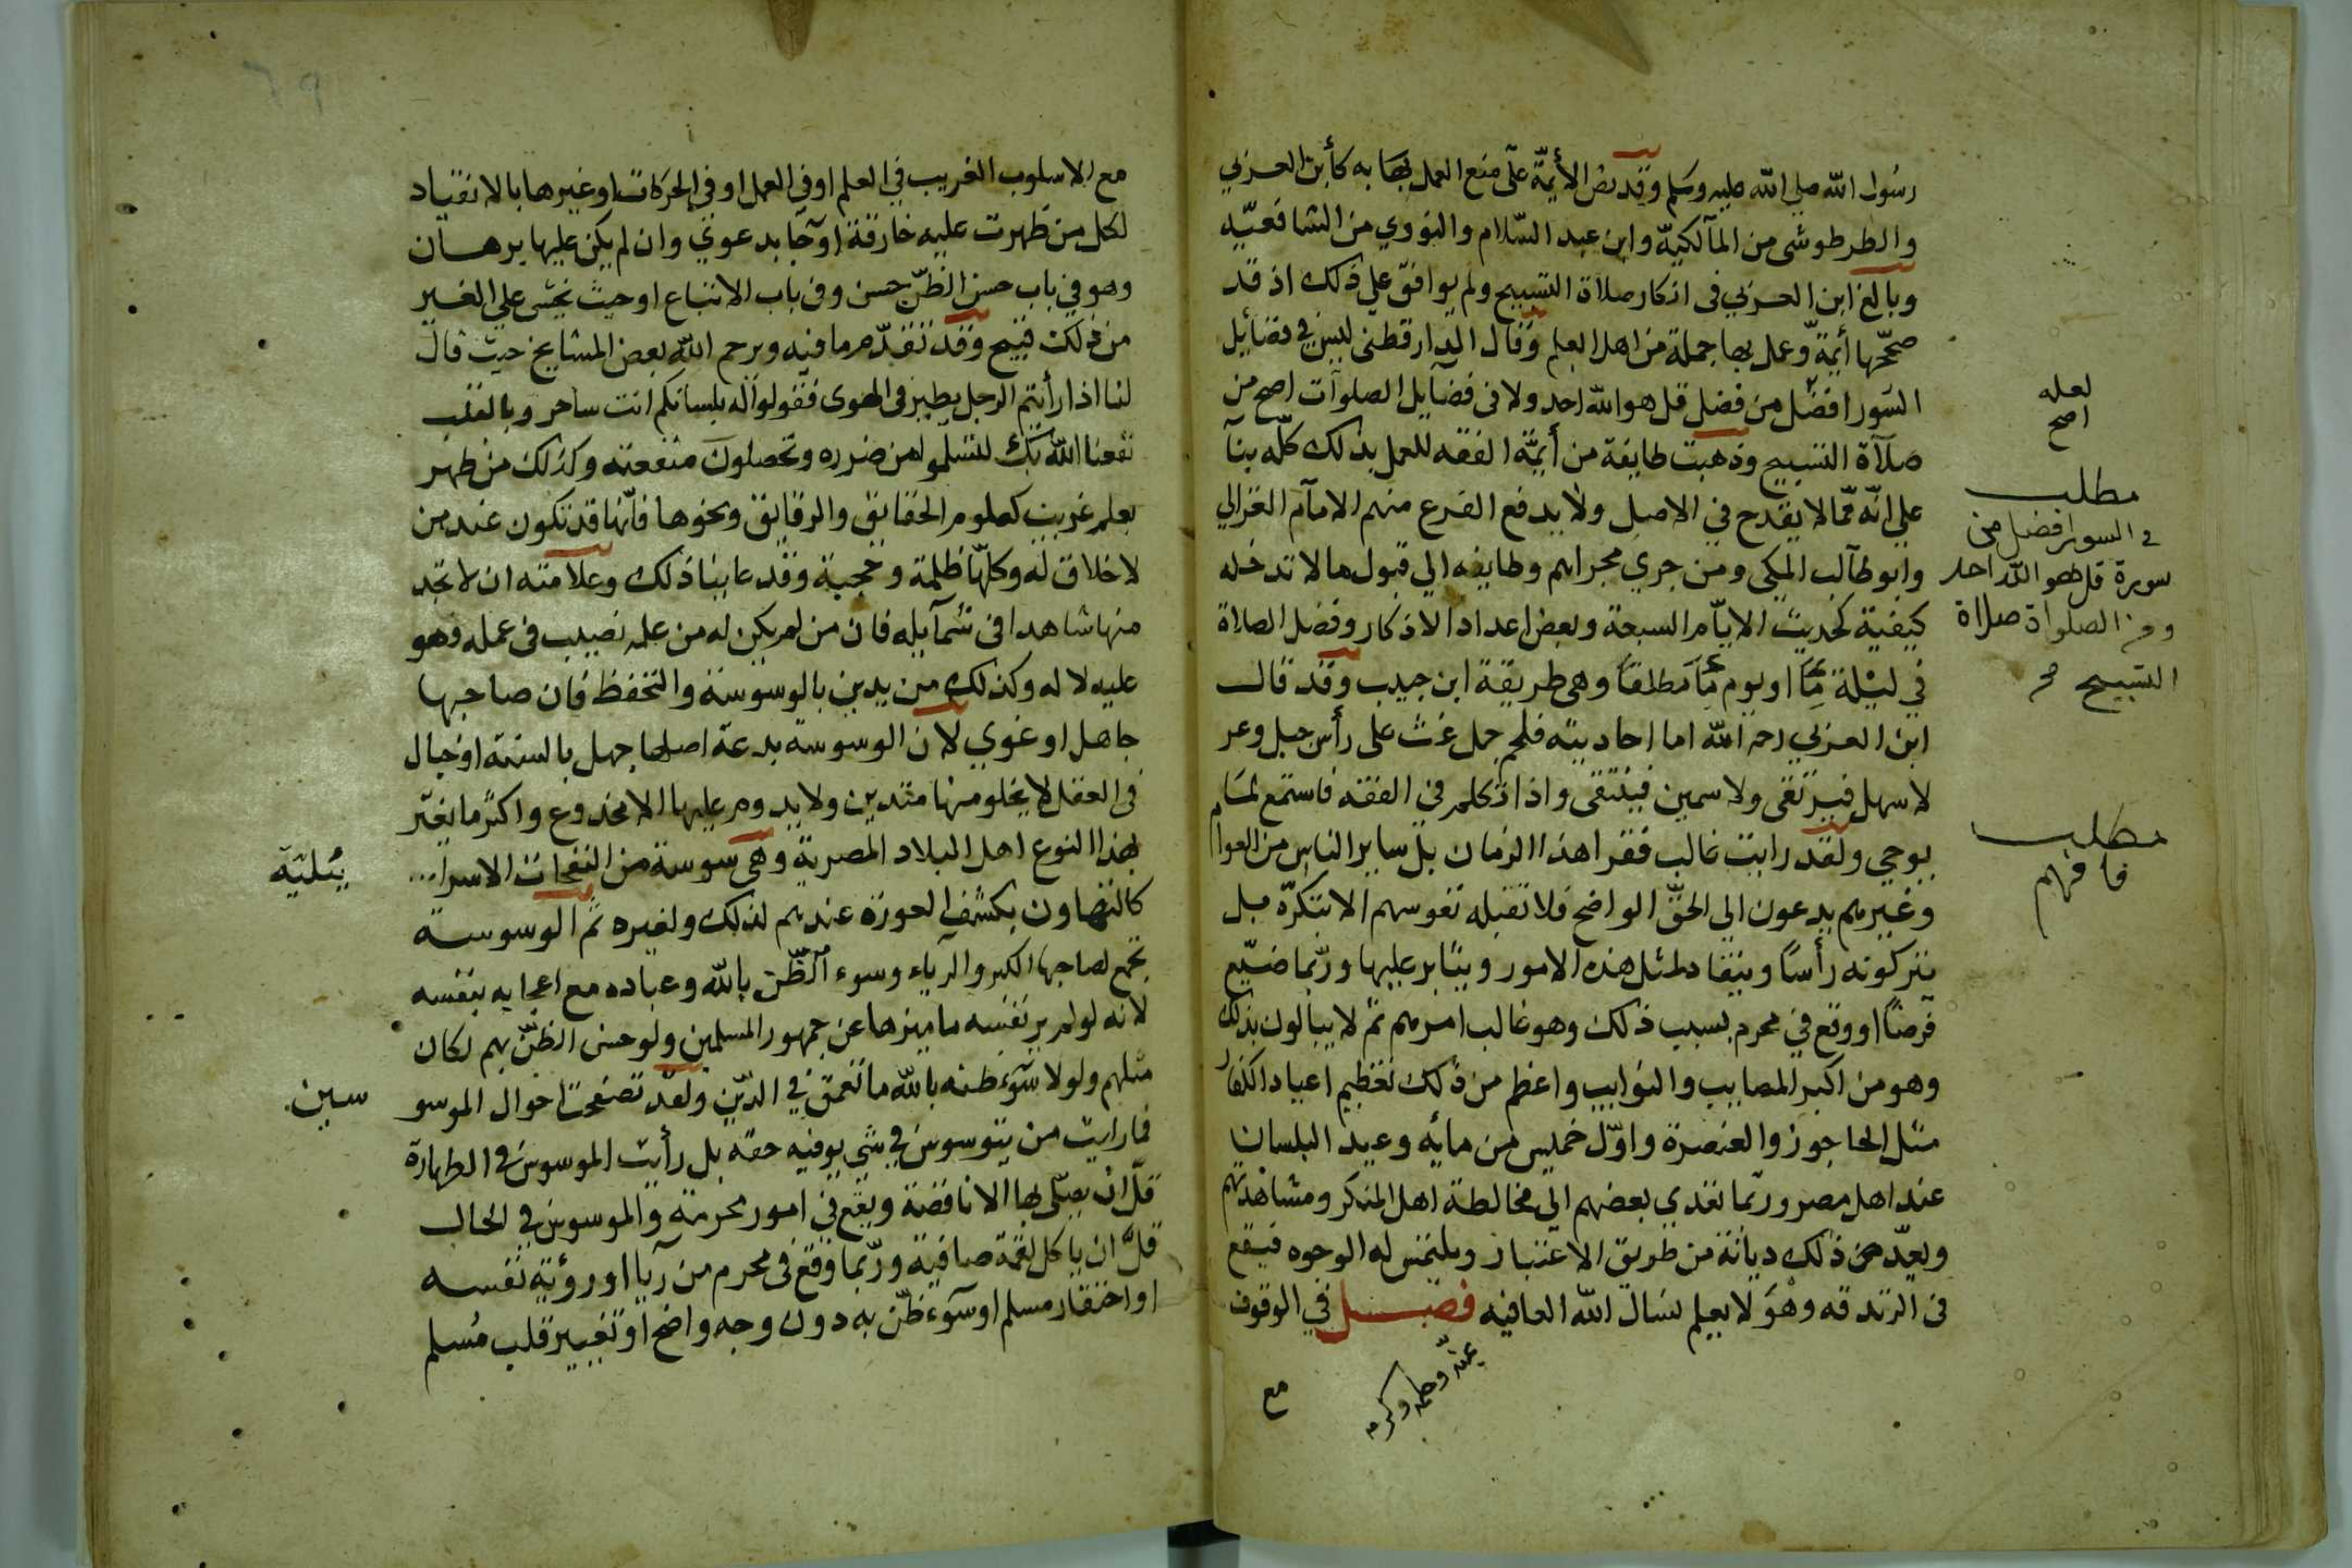 رسول الله صلي الله عليه وسلم وقد نص الأيمّة علي منع العمل بها به كأبن العربي
والطرطوشي من المالكيّة وابن عبد السّلام والنووي من الشافعيّه
وبالغ ابن العربي في اذكار صلاة التسبيح ولم يوافق علي ذلك اذ قد
صححّها أيمّة وعمل بها جملة من اهل العلم وقال الدارقطني ليس في فضائيل
السّور افضل من فضل قل هو الله احد ولا في فضآيل الصلوآت اصح من
صلآة التسبيح وذهبت طايفة من أيمّة الفقه للعمل بذلك كلّه بنآ
علي انّه ممّا لا يقدح في الاصل ولا يدفع الفرع منهم الامآم الغزالي
وابو طآلب المكي ومن جري مجراهم وطايفه الي قبول ما لا تدخله
كيفية كحديث الايّام السبعة وبعض اعداد الاذكار وفضل الصلاة
في ليلة مّا او يوم مّا مطلقا وهي طريقة ابن حبيب وقد قال
ابن العربي رحمه الله اما احاديثه فلحم جمل غث على رأس جبل وعر
لا سهل فيرتقى ولا سمين فينتقى واذا تكلم في الفقه فاستمع لما
يوحي ولقد رايت غالب فقرا هذا الزمان بل ساير الناس من العوام
وغيرهم يدعون الى الحقّ الواضح فلا تقبله نفوسهم الا بتكرّه بل
يتركونه رأسًا وينقاد لمثل هذه الامور ويثابر عليها وربّما ضيّع
فرضًا او وقع في محرم بسبب ذلك وهو غالب امرهم ثم لا يبالون بذلك
وهو من اكبر المصايب والنوايب واعظم من ذلك تعظيم اعياد الكفار
مثل الحاجوز والعنصرة واوّل خميس من مايه وعيد البلسان
عند اهل مصر وربّما تعدي بعضهم الي مخالطة اهل المنكر ومشاهدتهم
ويعدّ من ذلك ديانة من طريق الاعتبار ويلتمس له الوجوه فيقع
في الزندقه وهو لا يعلم نسال الله العافيه فصل في الوقوف
بمنّه وحلمه وكرمه
مع
لعله
اصح
مطلب
في السور افضل من
سورة قل هو الله احد
ومن الصلواة صلاة
التسبيح
مطلب
فافهم
مع الاسلوب الغريب في العلم او في العمل او في الحركات او غيرها بالانقياد
لكل من ظهرت عليه خارقة او جآ بدعوي وان لم يكن عليها برهان
وهو في باب حسن الظنّ حسن وفي باب الاتباع او حيث يخشى علي الغير
من ذلك قبيح وقد تقدّم ما فيه ويرحم الله بعض المشايخ حيث قال
لنا اذا رأيتم الرجل يطير في الهوى فقولوا له بلسانكم انت ساحر وبالقلب
نفعنا الله بك لتسلموا من ضرره وتحصلون منفعته وكذلك من ظهر
بعلم غريب كعلوم الحقايق والرقايق ونحوها فانّها قد تكون عند من
لا خلاق له وكلّها ظلمة وحجبة وقد عاينا ذلك وعلامته ان لا تجد
منها شاهدا في شمآيله فان من لم يكن له من علمه نصيب في عمله فهو
عليه لا له وكذلك من يدين بالوسوسة والتحفظ فان صاحبها
جاهل او غوي لان الوسوسه بدعة اصلها جهل بالسنة او خبال
في العقل لا يخلو منها متدين ولا يدوم عليها الا مخدوع واكثر ما يغتر
بهذا النوع اهل البلاد المصرية وهي سوسة من النفحات الاسرا...
كالتهاون بكشف العورة عندهم لذلك ولغيره ثم الوسوسة
تجمع لصاحبها الكبر والرياء وسوء الظّن بالله وعباده مع اعجابه بنفسه
لانه لو لم ير نفسه ما ميزها عن جمهور المسلمين ولو حسن الظنّ بهم لكان
مثلهم ولولا سوء ظنه بالله ما تعمق في الدّين ولقد تصفحت احوال الموسو
فما رايت من يتوسوس في شي يوفيه حقه بل رأيت الموسوس في الطهارة
قلّ ان يصلّى بها الا ناقصة ويقع في امور محرمة والموسوس في الحال
قلّ ان ياكل لقمة صافية وربّما وقع في محرم من ريا او رؤية نفسه
او احتقار مسلم او سوء ظنّ به دون وجه واضح او تغيير قلب مُسلم
يئلية
سين